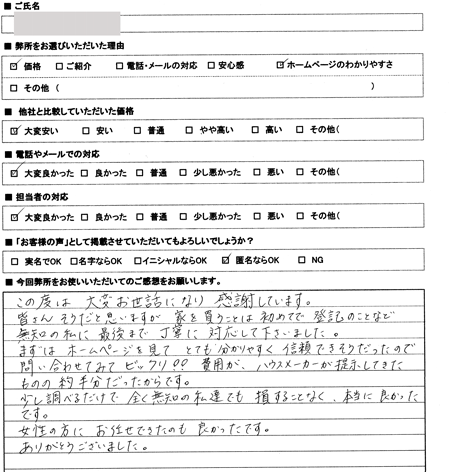 ■ ご氏名
■ 弊所をお選びいただいた理由
☑ 価格 □ ご紹介 □ 電話・メールの対応 □ 安心感 ☑ ホームページのわかりやすさ
□ その他 ( )
■ 他社と比較していただいた価格
☑ 大変安い □ 安い □ 普通 □ やや高い □ 高い □ その他(
■ 電話やメールでの対応
☑ 大変良かった □ 良かった □ 普通 □ 少し悪かった □ 悪い □ その他(
■ 担当者の対応
☑ 大変良かった □ 良かった □ 普通 □ 少し悪かった □ 悪い □ その他(
■「お客様の声」として掲載させていただいてもよろしいでしょうか?
□ 実名でOK □ 名字ならOK □ イニシャルならOK ☑ 匿名ならOK □ NG
■ 今回弊所をお使いいただいてのご感想をお願いします。
この度は 大変お世話になり 感謝しています。
皆さん そうだと思いますが 家を買うことは 初めてで 登記のことなど
無知の私に 最後まで 丁寧に 対応して下さいました。
まずは ホームページを見て とても分かりやすく 信頼できそうだったので
問い合わせてみて ビックリ!! 費用が、ハウスメーカーが提示してきた
ものの約半分だったからです。
少し調べるだけで 全く無知の私達でも 損することなく、本当に良かった
です。
女性の方に お任せできたのも 良かったです。
ありがとうございました。